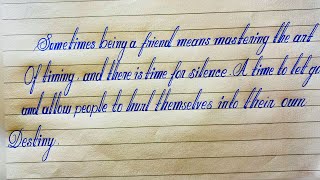 Sometimes being a friend means mastering the art
Of timing, and there is time for silence. A time to let go
and allow people to hurl themselves into their own
Destiny.